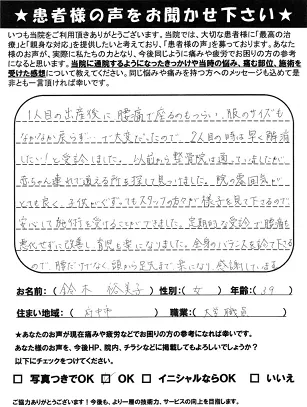 ★患者様の声をお聞かせ下さい★
いつも当院をご利用頂きありがとうございます。当院では、大切な患者様に「最高の治
療」と「親身な対応」を提供したいと考えており、「患者様の声」を募っております。あなた
様のお声が、実際に私たちの力となり、今後同じように痛みや疲労でお困りの方の参考
になると思います。当院に通院するようになったきっかけや当時の悩み、痛む部位、施術を
受けた感想について教えてください。同じ悩みや痛みを持つ方へのメッセージも込めて是
非とも一言頂ければ幸いです。
1人目の出産後に腰痛で座るのもつらい、服のサイズも
なかなか戻らず…で大変だったので、2人目の時は早く解消
したい！と受診しました。以前から整骨院は通っていましたが
赤ちゃん連れで通える所を探して見つけました。院の雰囲気が
とても良く、子供がぐずってもスタッフの方々が様子を見て下さるので
安心して施術を受けることができました。定期的な受診で腰痛も
悪化せずに改善し、育児も楽になりました。全身のバランスを診て下さる
ので、腰だけでなく頭から足先まで楽になり、感謝しています。
お名前：（鈴木 裕美子）性別：（女）年齢：（39）
住まい地域：（府中市）職業：（大学職員）
★あなたのお声が現在痛みや疲労などでお困りの方の参考になれば幸いです。
あなた様のお声を、今後HP、院内、チラシなどに掲載してもよろしいでしょうか？
以下にチェックをつけてください。
□ 写真つきでOK ☑ OK □ イニシャルならOK □ いいえ
ご協力ありがとうございます！今後も、より一層の技術力、サービスの向上を目指します。